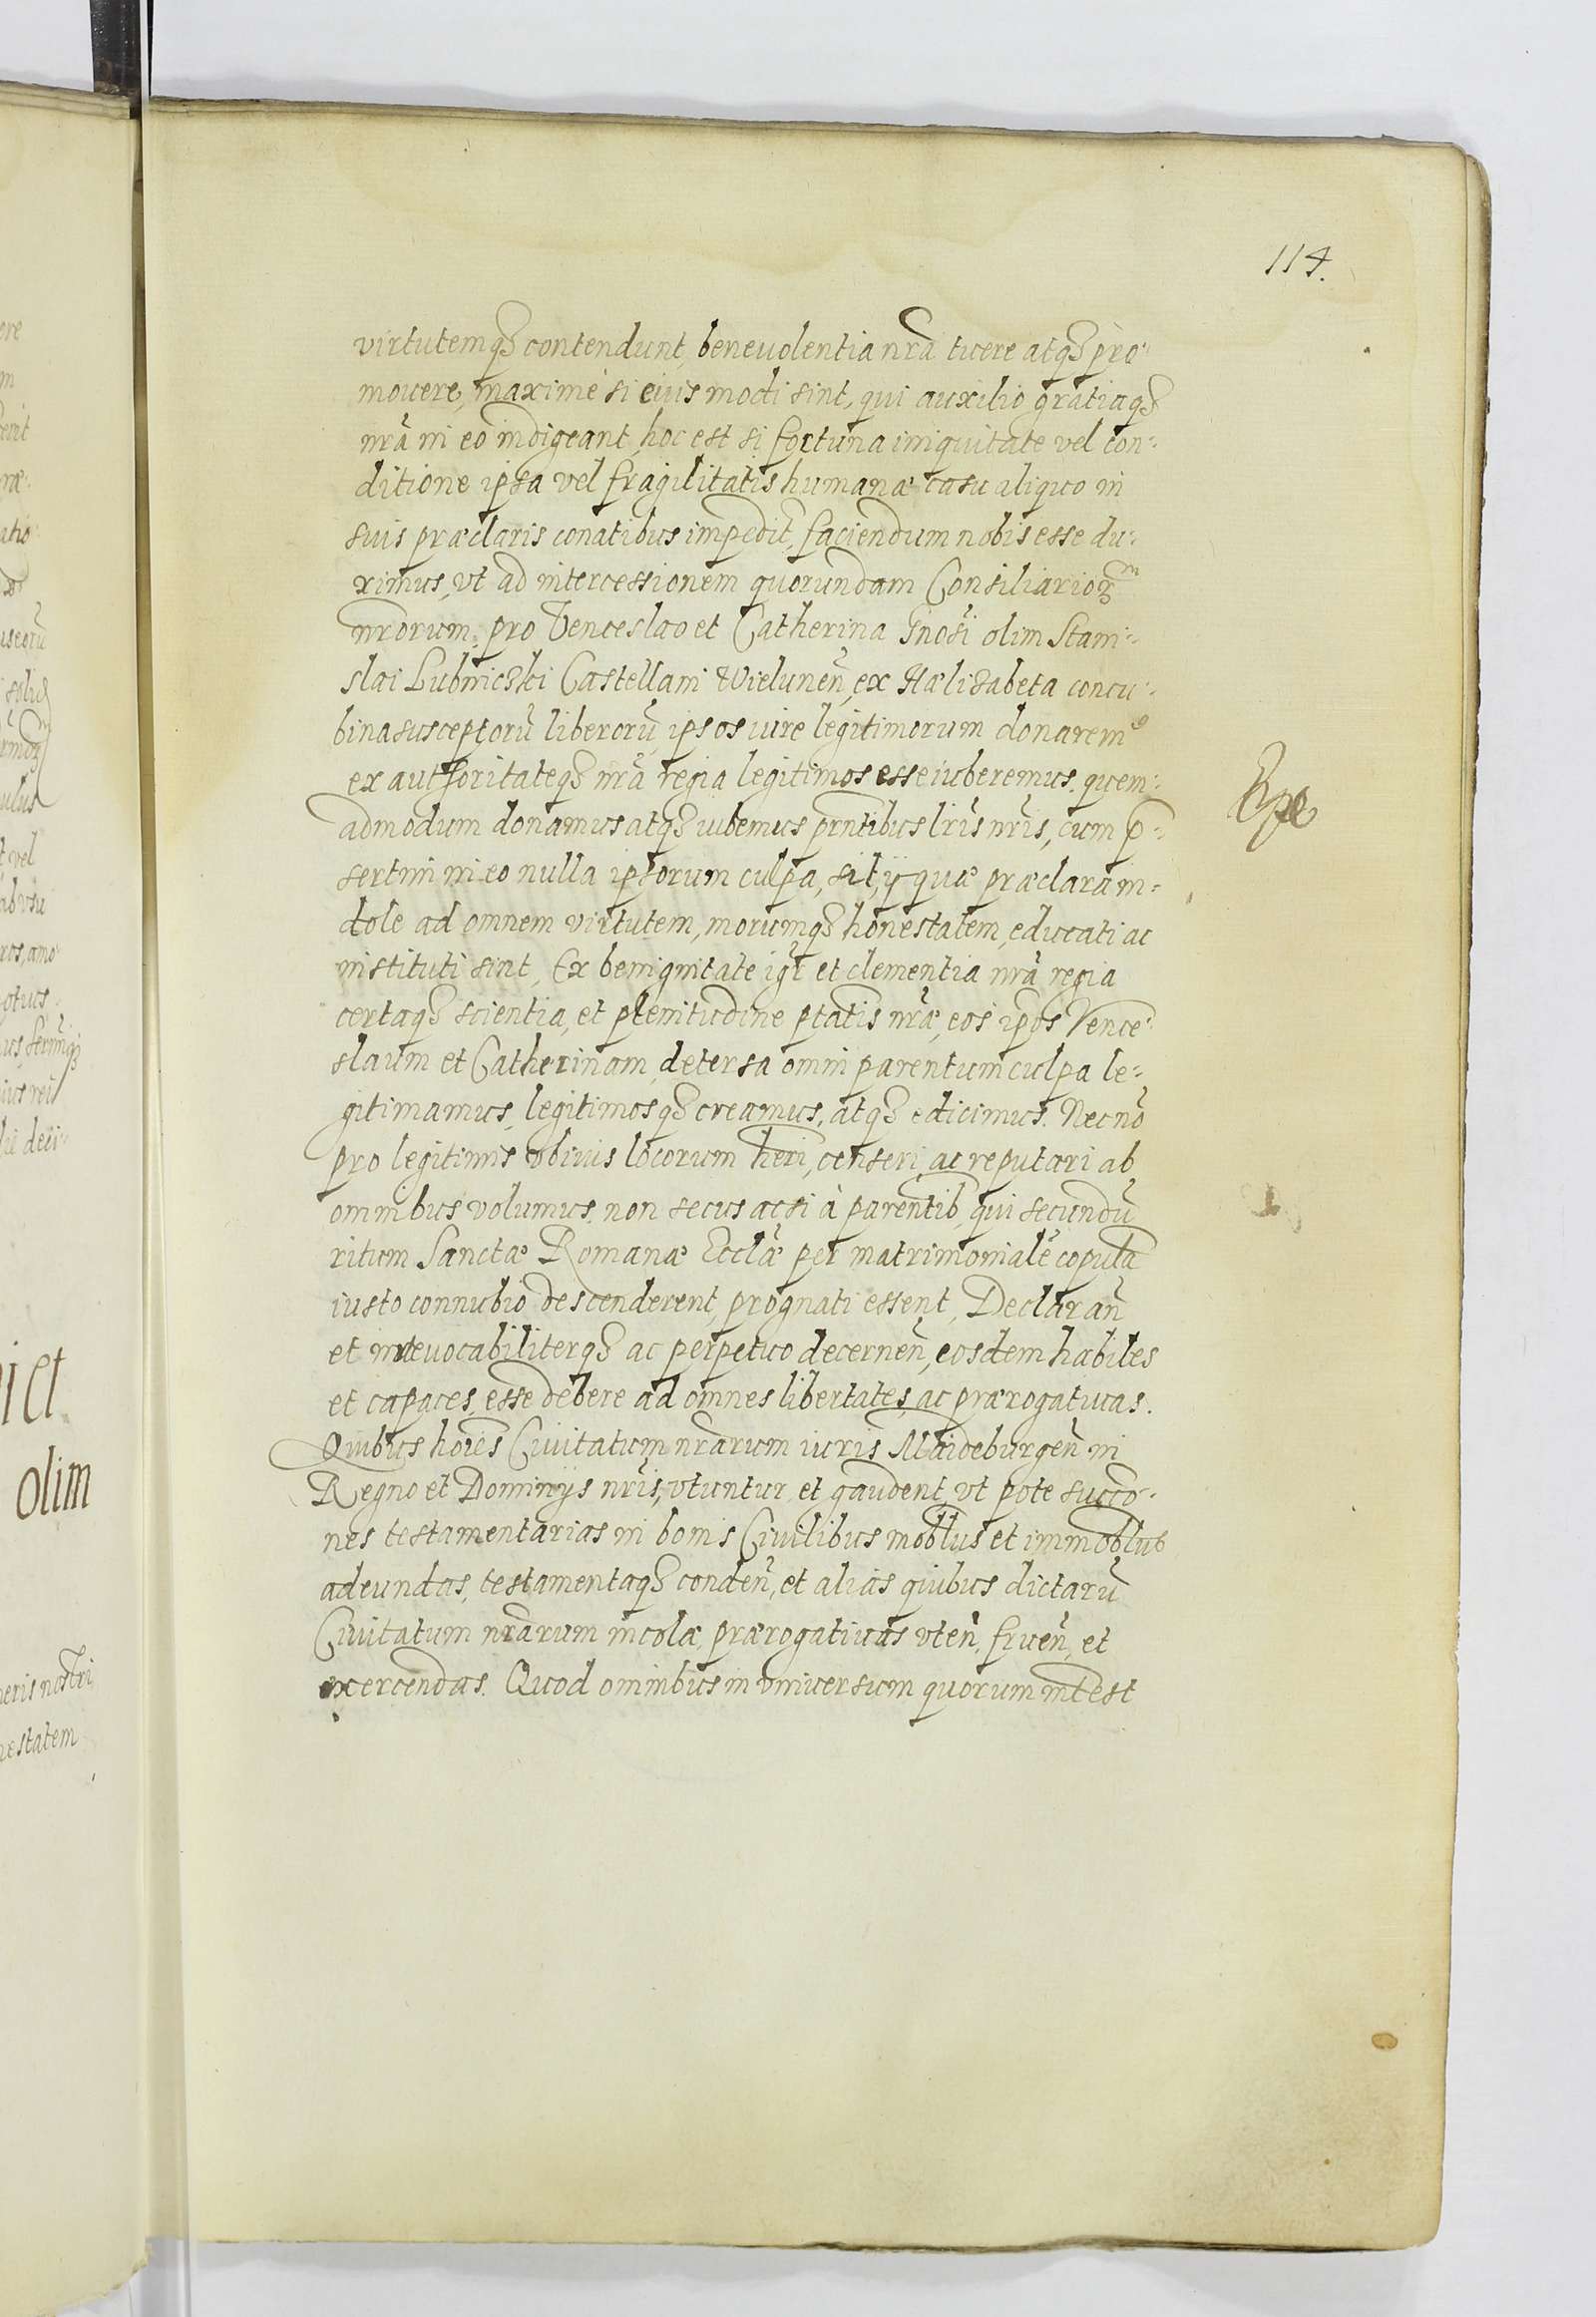 114.
virtutemq₃ contendunt, benevolentia nr̃a tuere atq₃ pro-
mouere, maximè si eius modi sint, qui auxilio gratiaq₃
nr̃a in eo indigeant, hoc est si fortuna iniquitate vel con-
ditione ipsa vel fragilitatis humanæ casu aliquo in
suis præclaris conatibus impedit̃, faciendum nobis esse du-
ximus, vt ad intercessionem quorundam Consiliarioꝝ
nr̃orum, pro Venceslao et Catherina olim Stani-
slai Lubniczki Castellani Wielunen̄, ex Hælizabeta concu-
bina susceptorū liberorū, ipsos iure legitimorum donarem9
ex authoritateq₃ nr̃a regia legitimos esse iuberemus. quem-
admodum donamus atq₃ iubemus pr̃ntibus lr̃is nr̃is, cum p̱-
sertim in eo nulla ipsorum culpa, sit, ij quæ præclara in-
dole ad omnem virtutem, morumq₃ honestatem, educati ac
instituti sint, Ex benignitate igr̃ et clementia nr̃a regia
certaq₃ scientia, et plenitudine ptatis nr̃æ, eos ip̃os Vence-
slaum et Catherinam, detersa omni parentum culpa le-
gitimamus, legitimosq₃ creamus, atq₃ edicimus. Necnō
pro legitimis vbiuis locorum heri, censeri, ac reputari ab
omnibus volumus, non secus ac si à parentib, qui secundū
ritum Sanctæ Romanæ Eccl̃æ per matrimonialē copulā
iusto connubio descenderent, prognati essent, Declaran̄
et irreuocabiliterq₃ ac perpetuo decernen̄, eosdem habiles
et capaces, esse debere ad omnes libertates, ac prærogatiuas.
Quibus hoīes Ciuitatum nr̃arum iuris Maideburgen̄ in
Regno et Dominijs nr̃is, vtuntur et gaudent, vt pote succō-
nes testamentarias in bonis Ciuilibus mob̃lus et immob̃lus
adeundas, testamentaq₃ conden̄, et alias quibus dictarū
Ciuitatum nr̃arum incolæ, prærogatiuas vten̄, fruen̄, et
exercendas. Quod omnibus in vniuersum quorum int̃est
olim